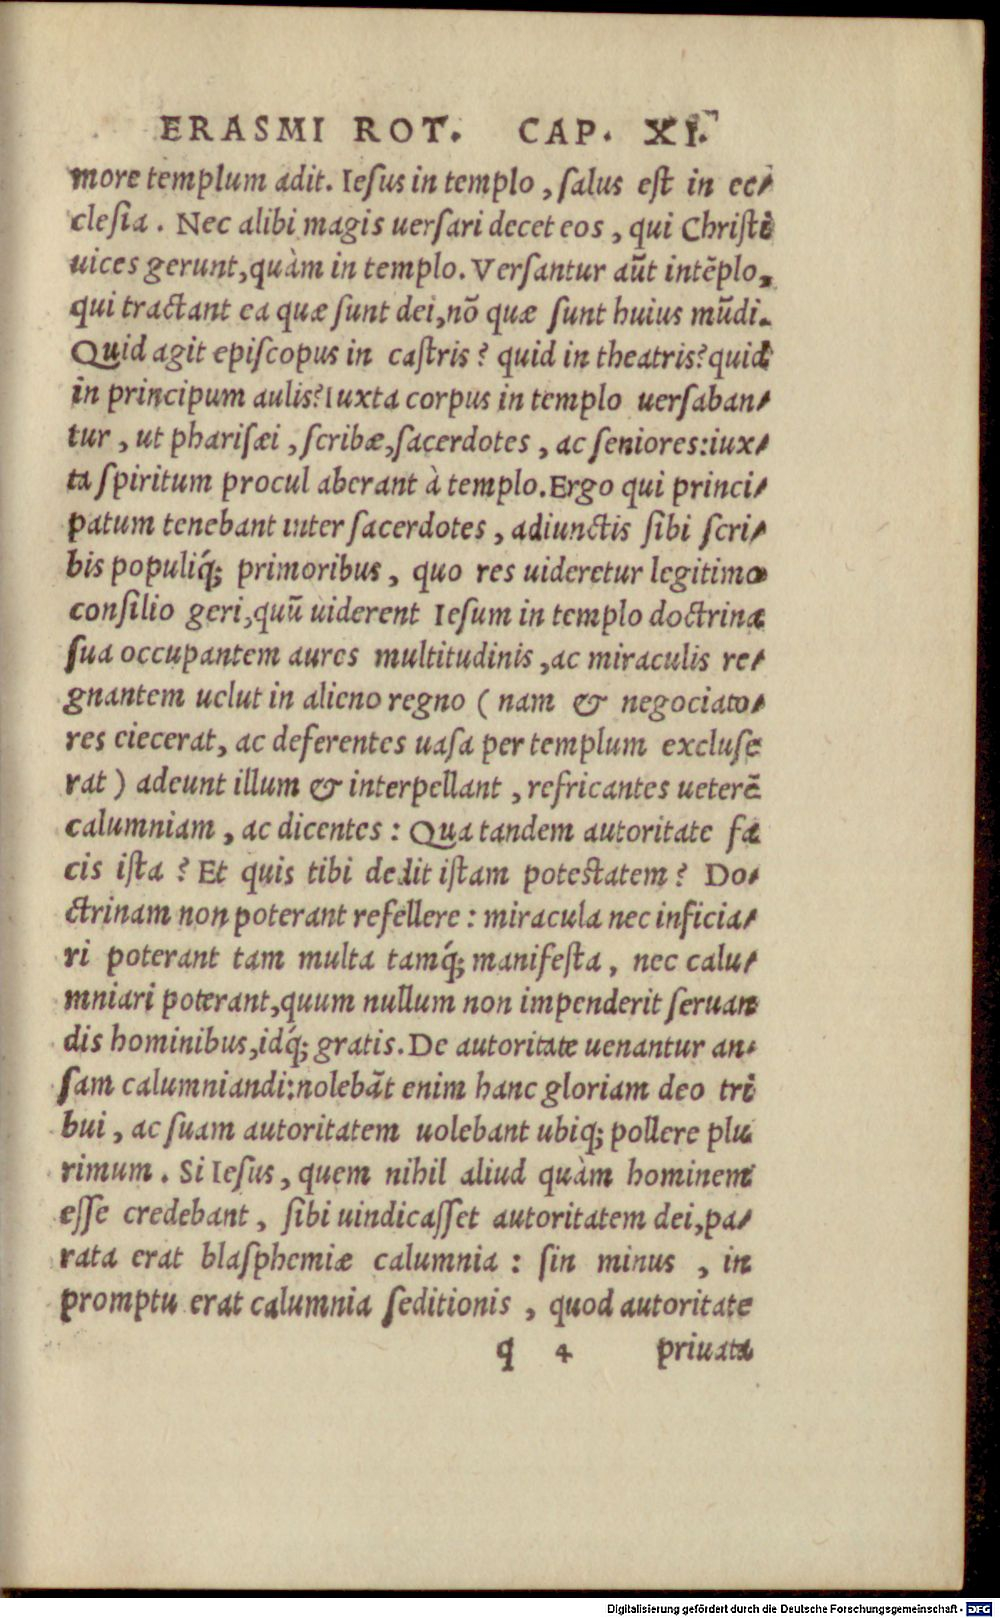 ERASMI ROT. CAP. XI.
more templum adit. Iesus in templo, salus est in ec-
clesia. Nec alibi magis uersari decet eos, qui Christi
uices gerunt, quàm in templo. Versantur aūt intẽplo,
qui tractant ea quæ sunt dei, nõ quæ sunt huius mũdi.
Quid agit episcopus in castris? quid in theatris? quid
in principum aulis? Iuxta corpus in templo uersaban-
tur, ut pharisæi, scribæ, sacerdotes, ac seniores: iux-
ta spiritum procul aberant à templo. Ergo qui princi-
patum tenebant inter sacerdotes, adiunctis sibi scri-
bis populiq́; primoribus, quo res uideretur legitimo
consilio geri, quũ uiderent Iesum in templo doctrina
sua occupantem aures multitudinis, ac miraculis re-
gnantem uelut in alieno regno (nam & negociato-
res eiecerat, ac deferentes uasa per templum excluse
rat) adeunt illum & interpellant, refricantes ueterẽ
calumniam, ac dicentes: Qua tandem autoritate fa
cis ista? Et quis tibi dedit istam potestatem? Do-
ctrinam non poterant refellere: miracula nec inficia-
ri poterant tam multa tamq́; manifesta, nec calu-
mniari poterant, quum nullum non impenderit seruan
dis hominibus, idq́; gratis. De autoritate uenantur an-
sam calumniandi: nolebãt enim hanc gloriam deo tri
bui, ac suam autoritatem uolebant ubiq; pollere plu
rimum. Si Iesus, quem nihil aliud quàm hominem
esse credebant, sibi uindicasset autoritatem dei, pa-
rata erat blasphemiæ calumnia: sin minus, in
promptu erat calumnia seditionis, quod autoritate
q 4 priuata
Digitalisierung gefördert durch die Deutsche Forschungsgemeinschaft - DFG